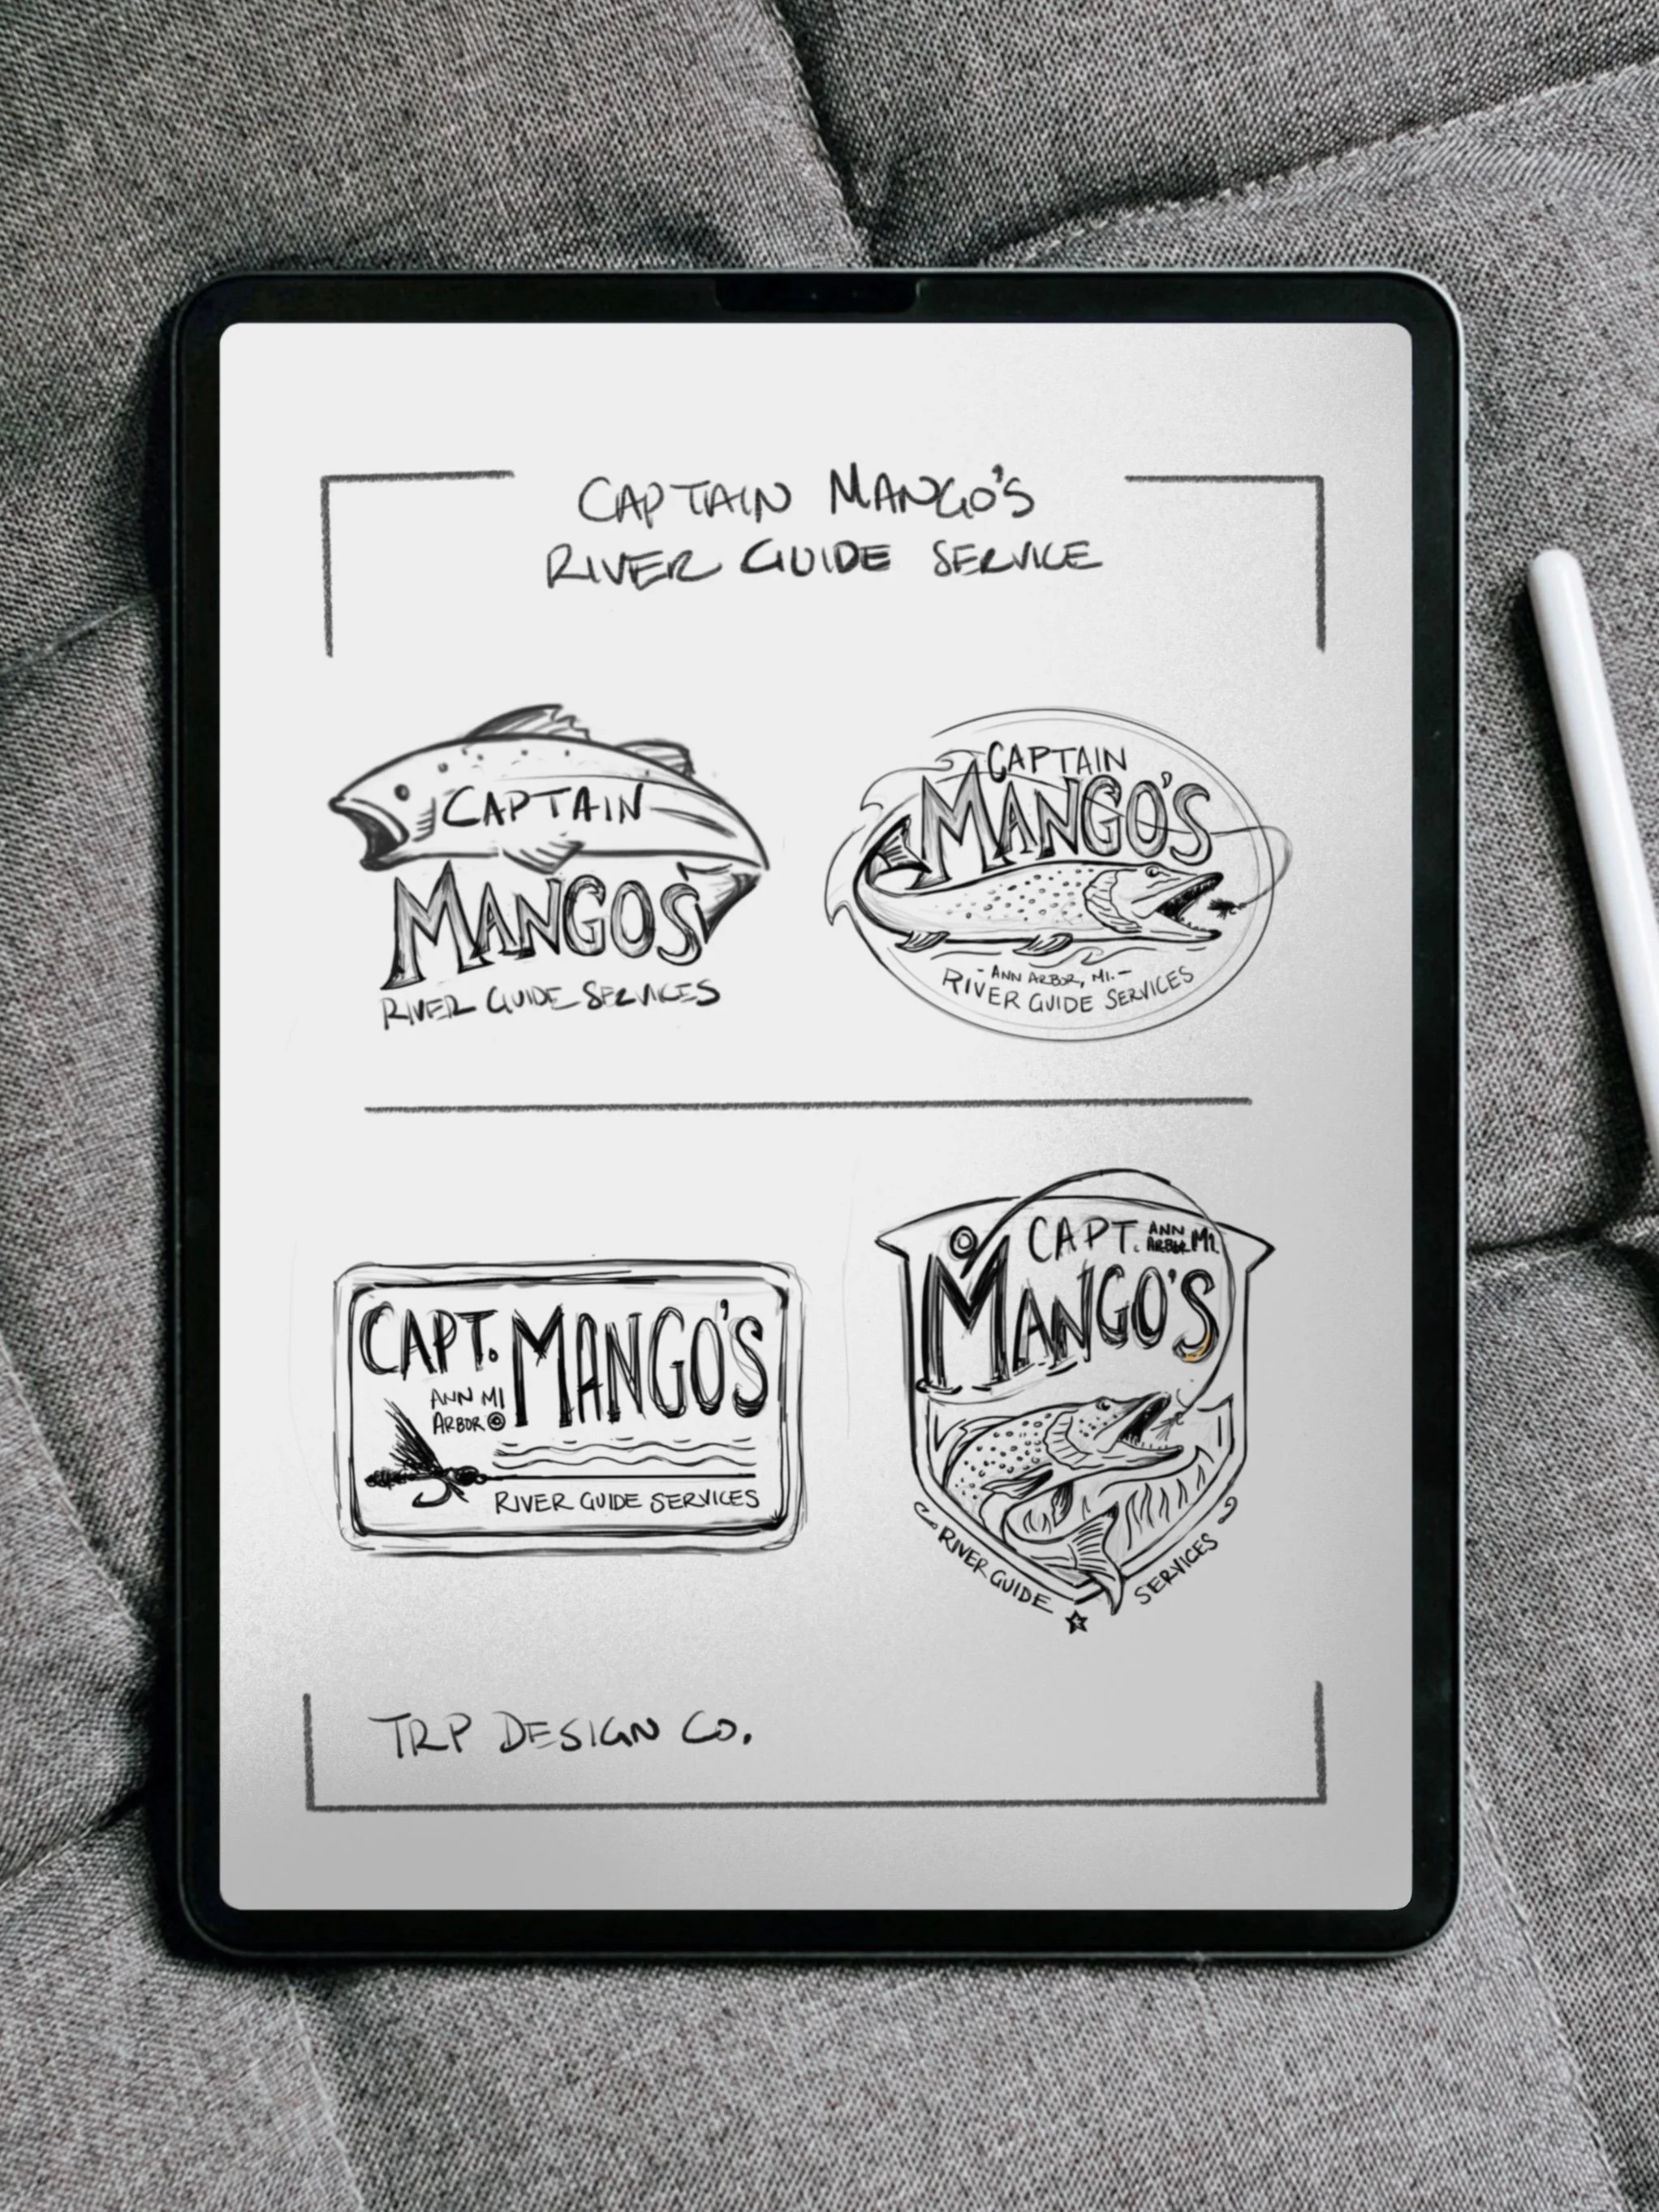 CAPTAIN MANGO'S
RIVER GUIDE SERVICE
CAPTAIN
MANGOS
RIVER GUIDE SERVICES
CAPTAIN
MANGO'S
- ANN ARBOR, MI. -
RIVER GUIDE SERVICES
CAPT. MANGO'S
ANN MI
ARBOR ©
RIVER GUIDE SERVICES
CAPT. ANN
ARBOR MI.
MANGO'S
RIVER GUIDE SERVICES
TRP DESIGN CO.